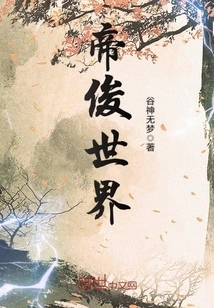 帝俊世界
谷神无梦◎著
中文网